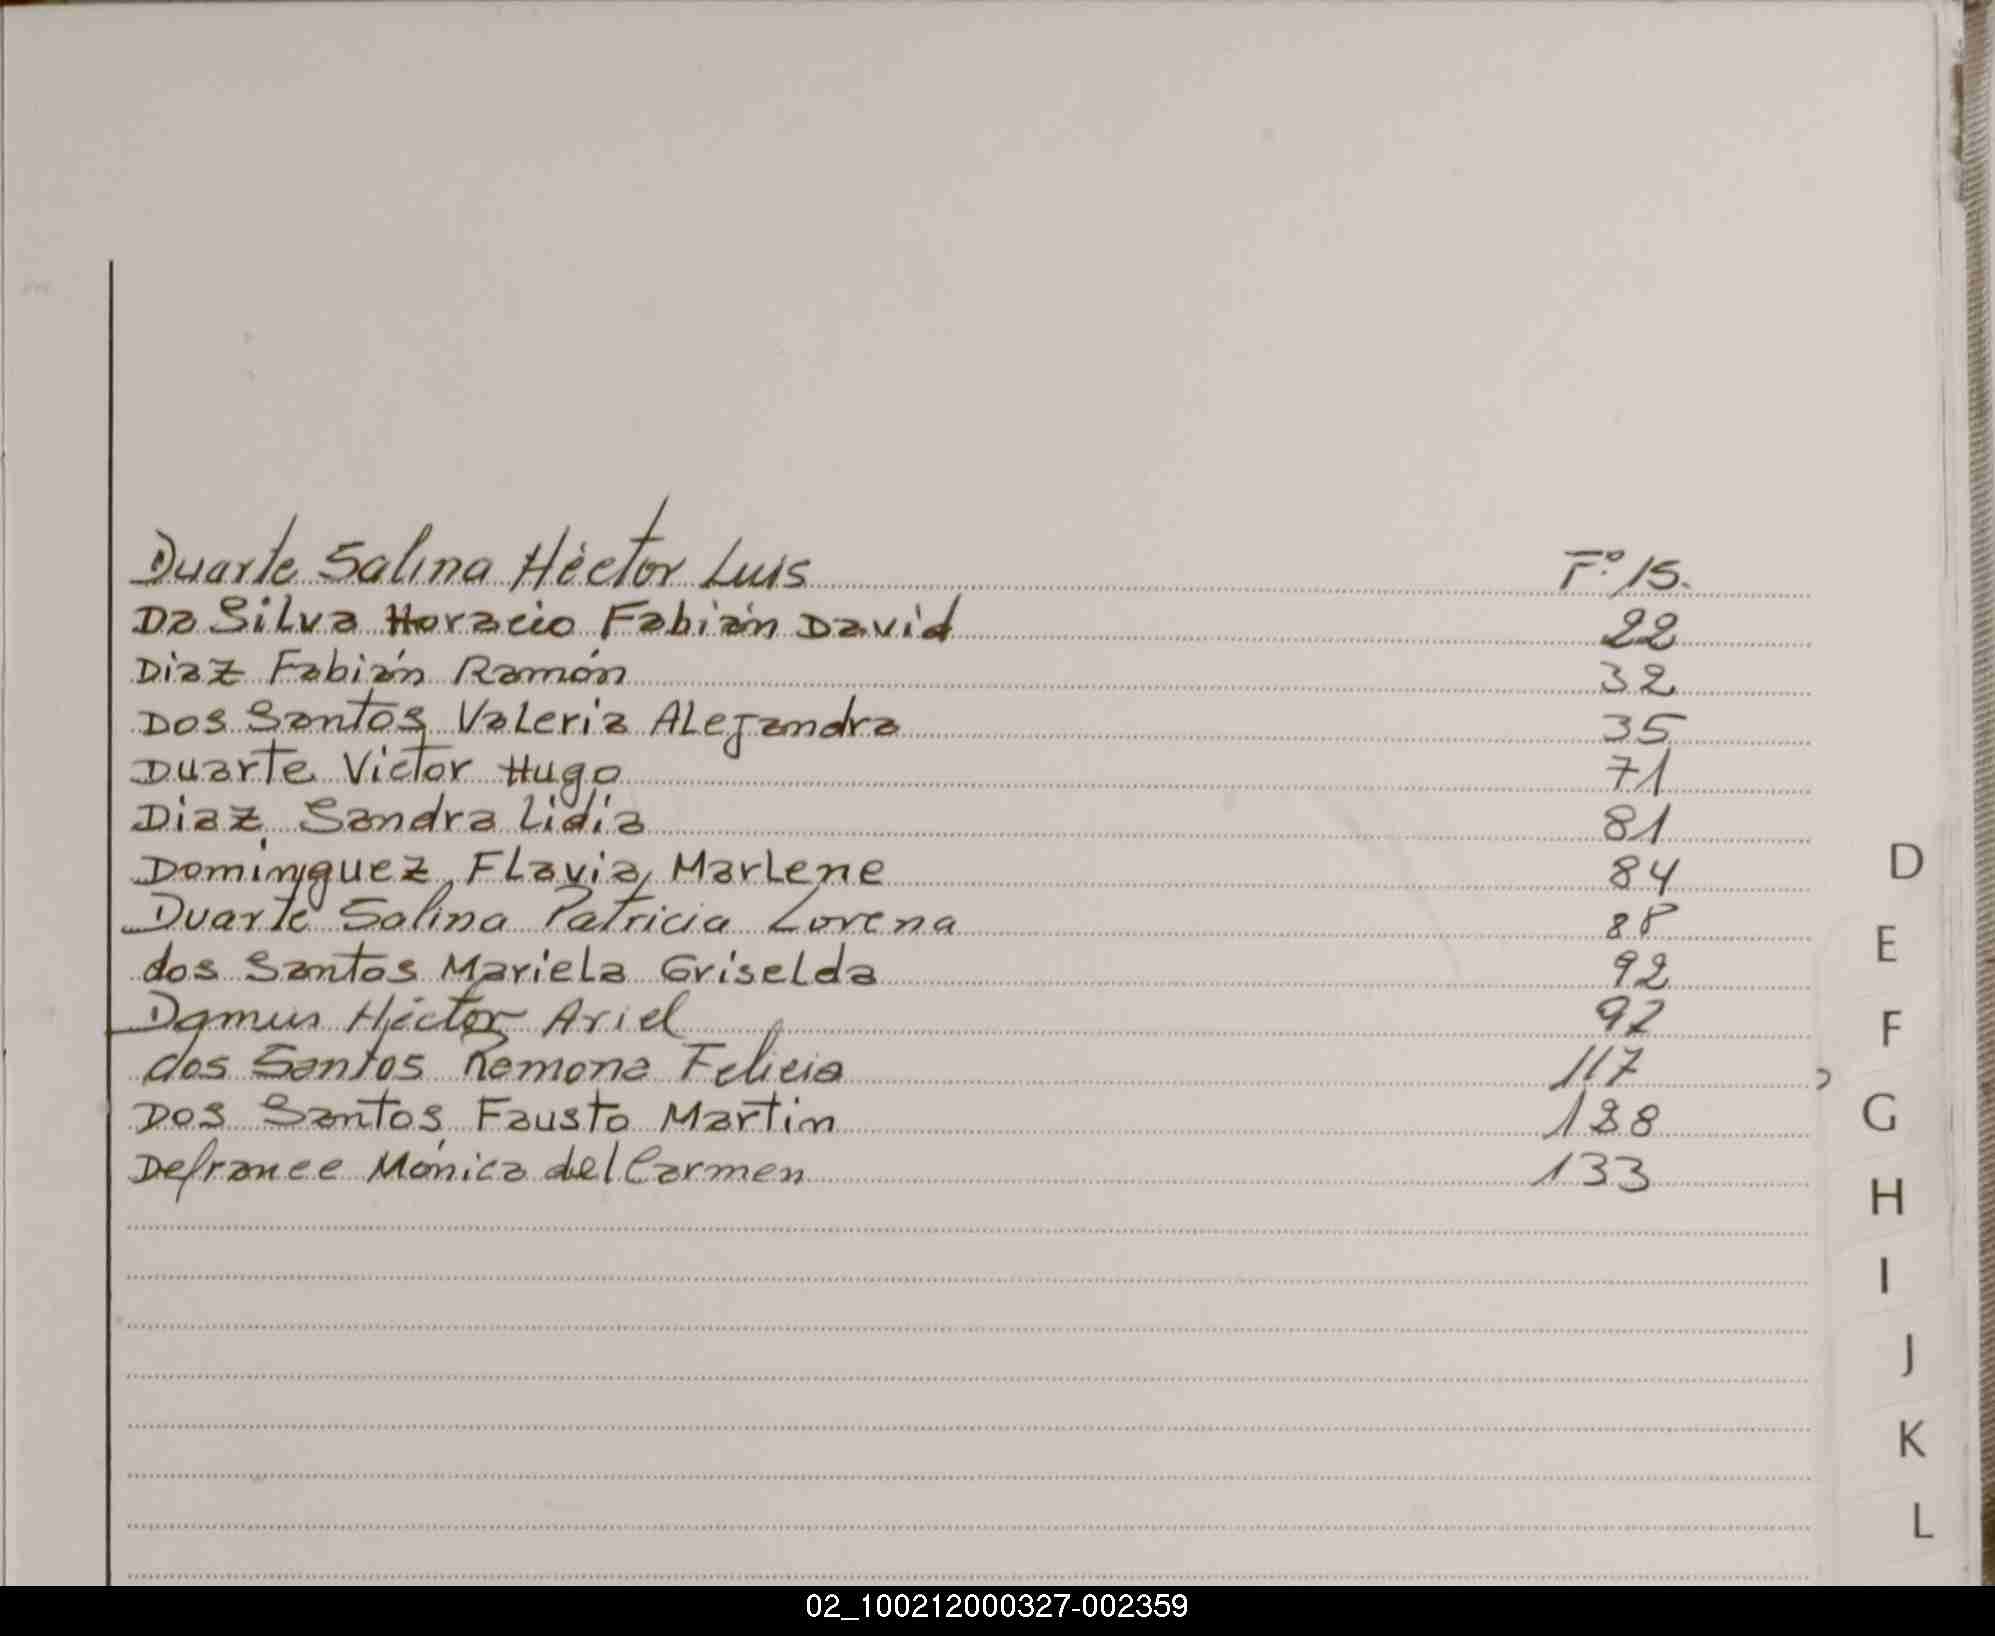 Duarte Salina Héctor Luis Fº. 15.
Da Silva Horacio Fabián David 22
Diaz Fabián Ramón 32
Dos Santos Valeria Alejandra 35
Duarte Victor Hugo 71
Diaz Sandra Lidia 81
Dominguez, Flavia Marlene 84
Duarte Salina Patricia Lorena 88
dos Santos Mariela Griselda 92
Damus Héctor Ariel 97
dos Santos Ramona Felicia 117
Dos Santos, Fausto Martin 128
Defrance Mónica del Carmen 133
D
E
F
G
H
I
J
K
L
02_100212000327-002359